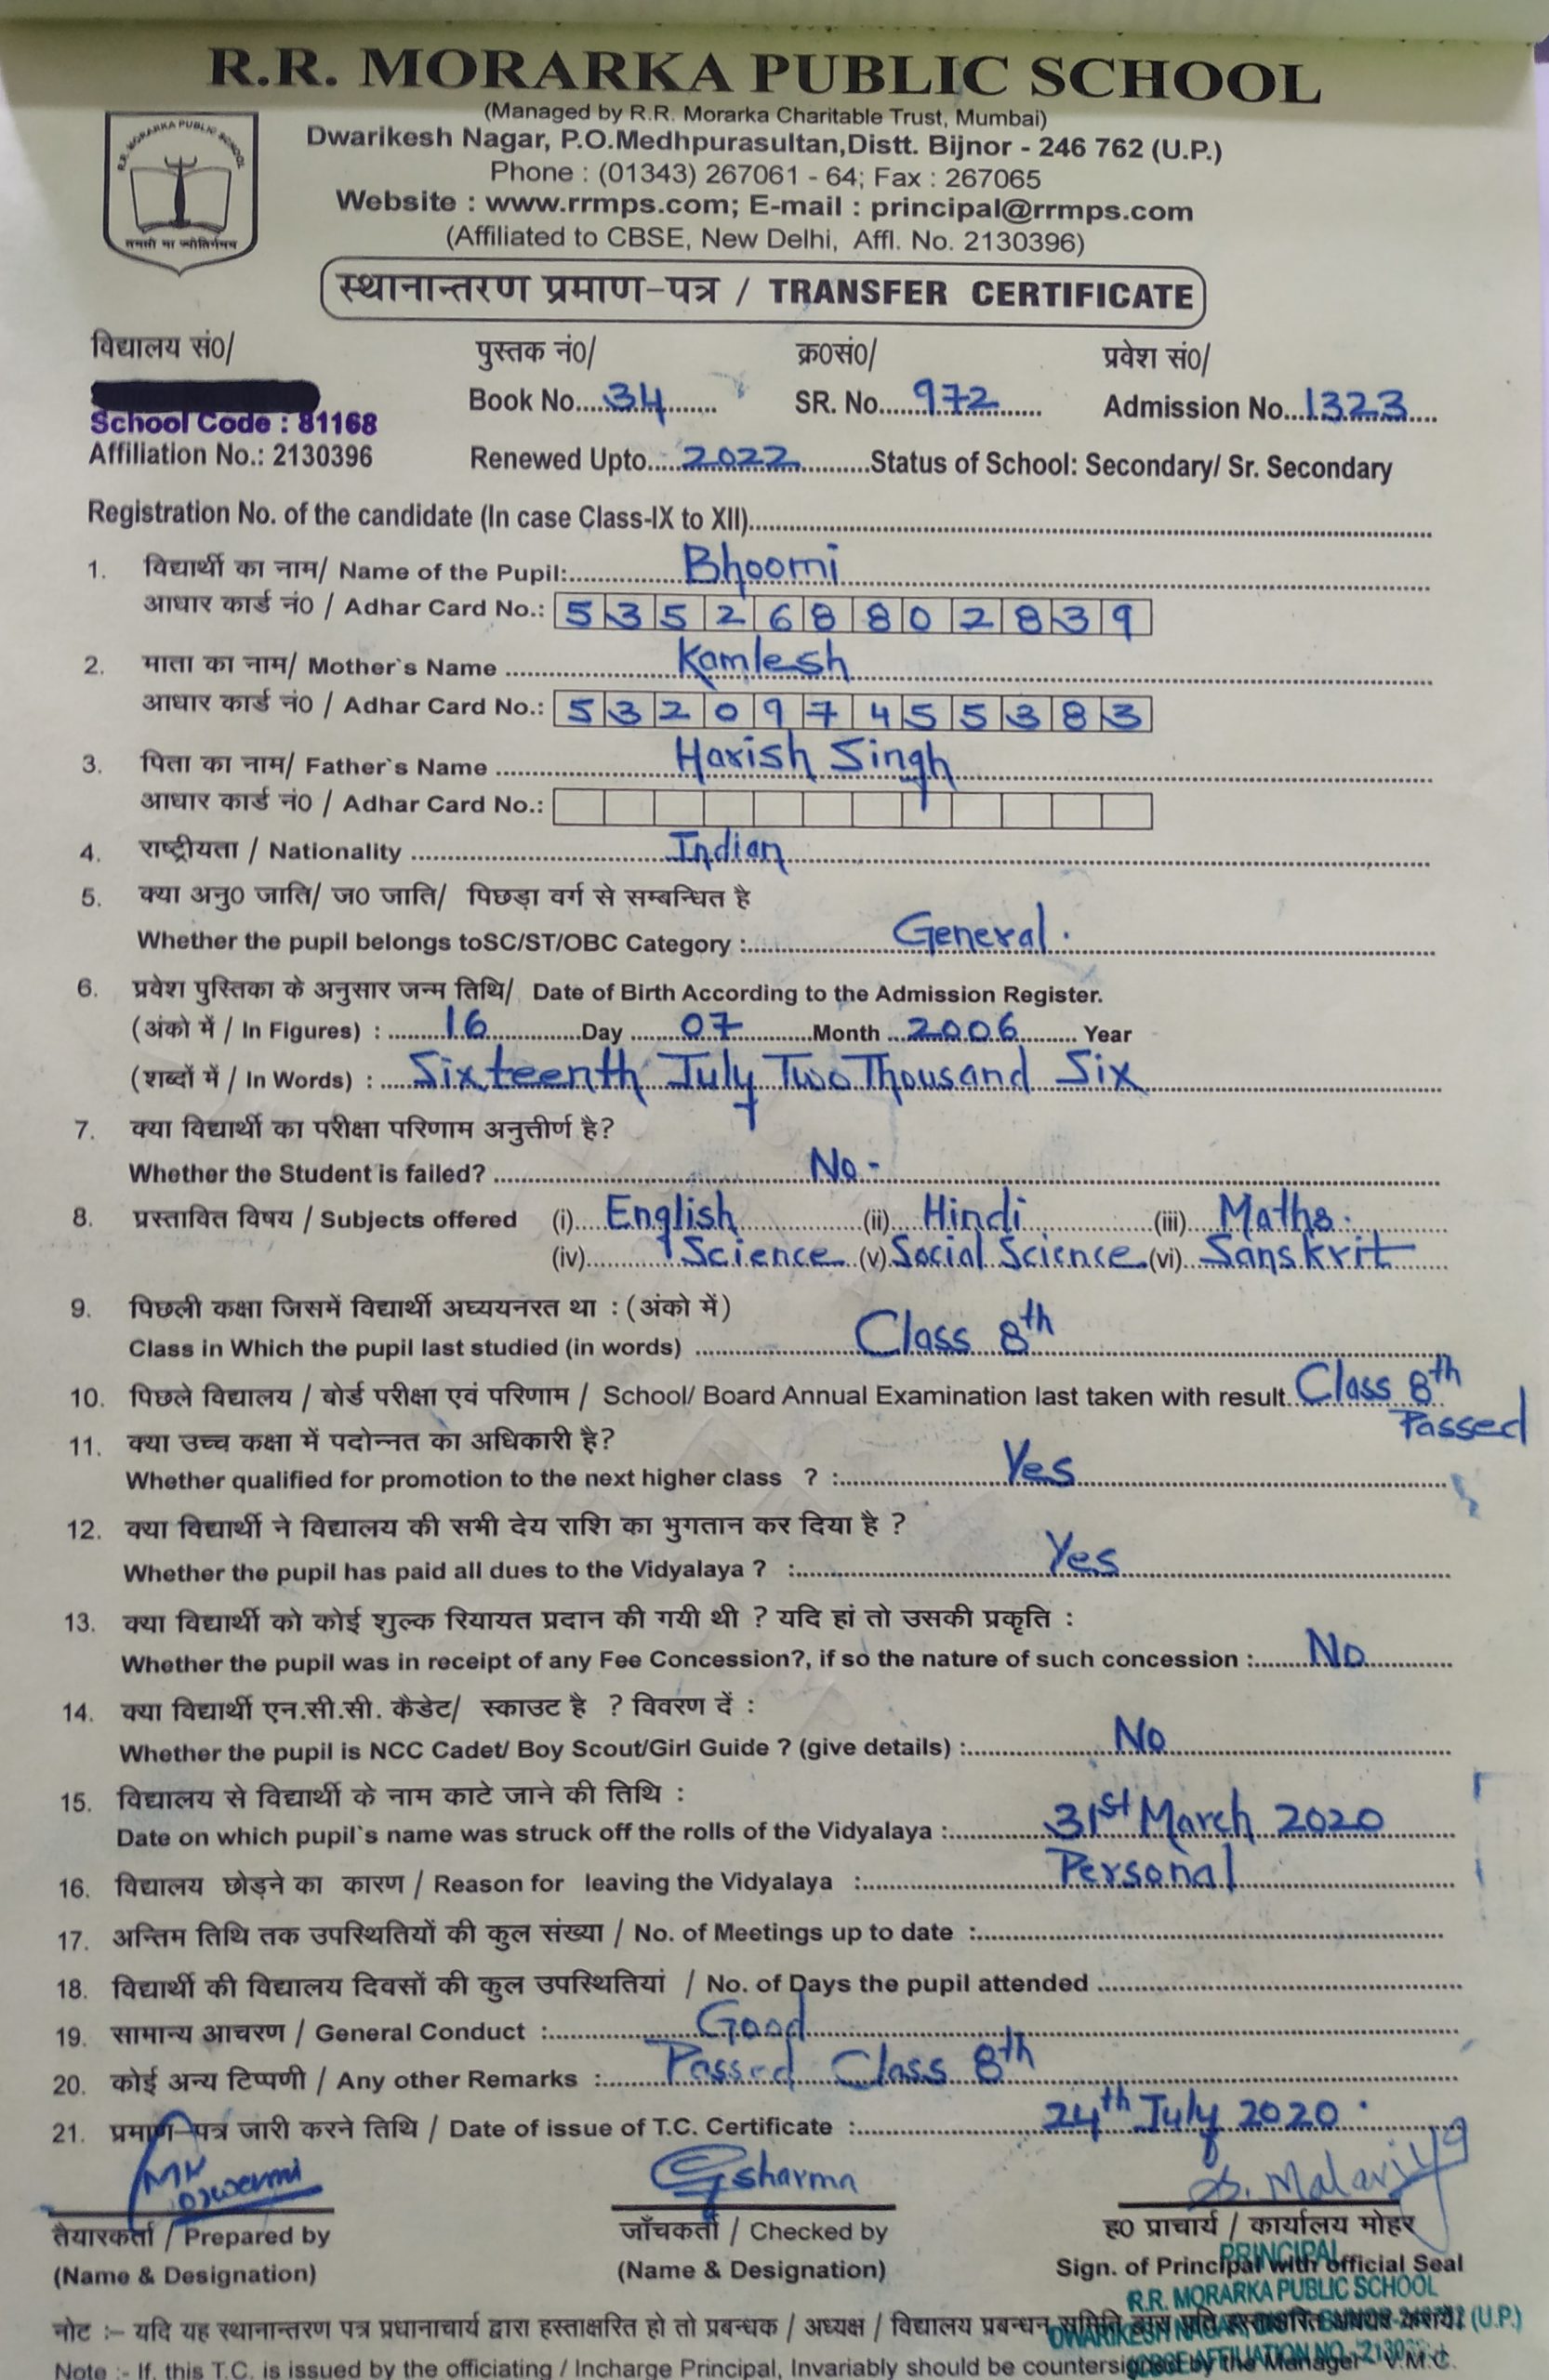 R.R. MORARKA PUBLIC SCHOOL
(Managed by R.R. Morarka Charitable Trust, Mumbai)
R.R. MORARKA PUBLIC SCHOOL
Dwarikesh Nagar, P.O.Medhpurasultan,Distt. Bijnor - 246 762 (U.P.)
Phone : (01343) 267061 - 64; Fax : 267065
Website : www.rrmps.com; E-mail : principal@rrmps.com
(Affiliated to CBSE, New Delhi, Affl. No. 2130396)
स्थानान्तरण प्रमाण-पत्र / TRANSFER CERTIFICATE
विद्यालय सं0/ पुस्तक नं0/ क्र0सं0/ प्रवेश सं0/
Book No. 34 SR. No. 972 Admission No. 1323
School Code : 81168
Affiliation No.: 2130396 Renewed Upto 2022 Status of School: Secondary/ Sr. Secondary
Registration No. of the candidate (In case Class-IX to XII)
1. विद्यार्थी का नाम/ Name of the Pupil: Bhoomi
आधार कार्ड नं0 / Adhar Card No.: 5 3 5 2 6 8 8 0 2 8 3 9
2. माता का नाम/ Mother`s Name Kamlesh
आधार कार्ड नं0 / Adhar Card No.: 5 3 2 0 9 7 4 5 5 3 8 3
3. पिता का नाम/ Father`s Name Harish Singh
आधार कार्ड नं0 / Adhar Card No.:
4. राष्ट्रीयता / Nationality Indian
5. क्या अनु0 जाति/ ज0 जाति/ पिछड़ा वर्ग से सम्बन्धित है
Whether the pupil belongs toSC/ST/OBC Category : General.
6. प्रवेश पुस्तिका के अनुसार जन्म तिथि/ Date of Birth According to the Admission Register.
(अंको में / In Figures) : 16 Day 07 Month 2006 Year
(शब्दों में / In Words) : Sixteenth July Two Thousand Six
7. क्या विद्यार्थी का परीक्षा परिणाम अनुत्तीर्ण है?
Whether the Student is failed? No-
8. प्रस्तावित विषय / Subjects offered (i) English (ii) Hindi (iii) Maths.
(iv) Science (v) Social Science (vi) Sanskrit
9. पिछली कक्षा जिसमें विद्यार्थी अघ्ययनरत था : (अंको में)
Class in Which the pupil last studied (in words) Class 8th
10. पिछले विद्यालय / बोर्ड परीक्षा एवं परिणाम / School/ Board Annual Examination last taken with result. Class 8th
Passed
11. क्या उच्च कक्षा में पदोन्नत का अधिकारी है?
Whether qualified for promotion to the next higher class ? : Yes
12. क्या विद्यार्थी ने विद्यालय की सभी देय राशि का भुगतान कर दिया है ?
Whether the pupil has paid all dues to the Vidyalaya ? : Yes
13. क्या विद्यार्थी को कोई शुल्क रियायत प्रदान की गयी थी ? यदि हां तो उसकी प्रकृति :
Whether the pupil was in receipt of any Fee Concession?, if so the nature of such concession : No
14. क्या विद्यार्थी एन.सी.सी. कैडेट/ स्काउट है ? विवरण दें :
Whether the pupil is NCC Cadet/ Boy Scout/Girl Guide ? (give details) : No
15. विद्यालय से विद्यार्थी के नाम काटे जाने की तिथि :
Date on which pupil`s name was struck off the rolls of the Vidyalaya : 31st March 2020
16. विद्यालय छोड़ने का कारण / Reason for leaving the Vidyalaya : Personal
17. अन्तिम तिथि तक उपस्थितियों की कुल संख्या / No. of Meetings up to date :
18. विद्यार्थी की विद्यालय दिवसों की कुल उपस्थितियां / No. of Days the pupil attended
19. सामान्य आचरण / General Conduct : Good
20. कोई अन्य टिप्पणी / Any other Remarks : Passed Class 8th
21. प्रमाण-पत्र जारी करने तिथि / Date of issue of T.C. Certificate : 24th July 2020.
Gsharma
तैयारकर्ता / Prepared by जाँचकर्ता / Checked by ह0 प्राचार्य / कार्यालय मोहर
(Name & Designation) (Name & Designation) Sign. of Principal with official Seal
PRINCIPAL
R.R. MORARKA PUBLIC SCHOOL
नोट :- यदि यह स्थानान्तरण पत्र प्रधानाचार्य द्वारा हस्ताक्षरित हो तो प्रबन्धक / अध्यक्ष / विद्यालय प्रबन्धन समिति
DWARIKESH NAGAR (U.P.)
CBSE AFFILIATION NO.
Note :- If, this T.C. is issued by the officiating / Incharge Principal, Invariably should be countersigned by the Manager - V.M.C.